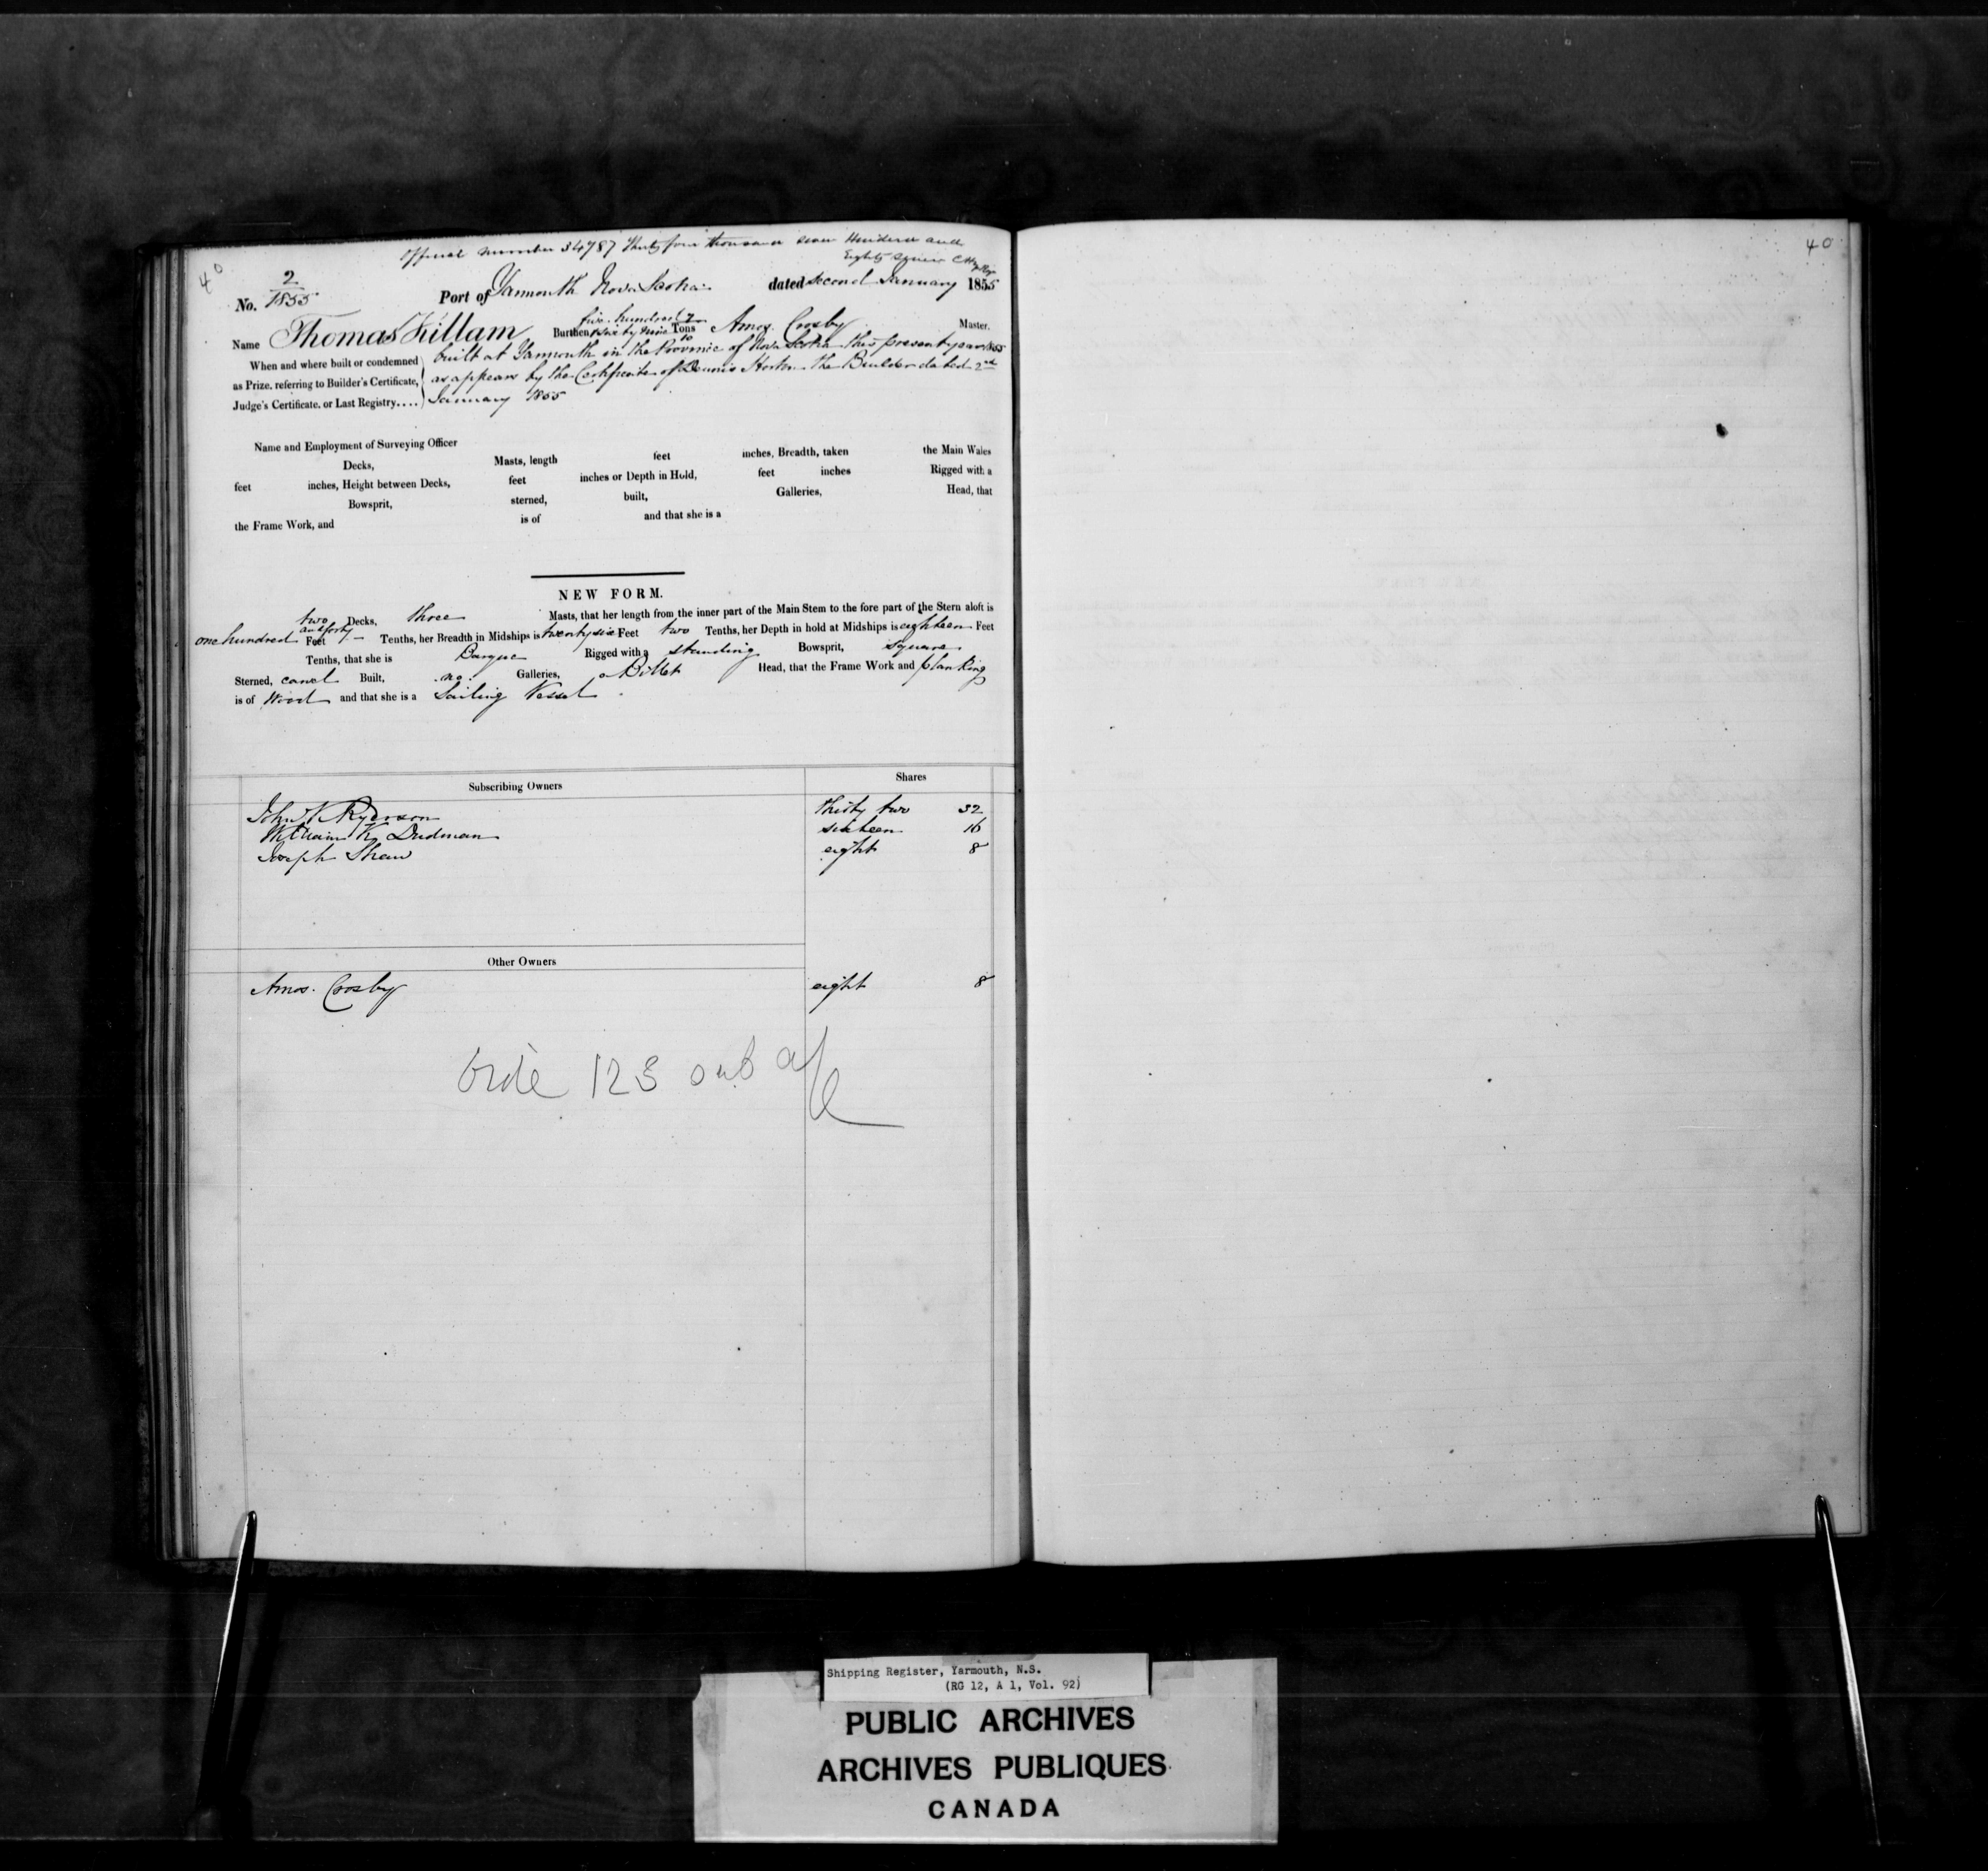 Official Number 34787 Thirty four thousand seven Hundred and
Eighty seven
40
No. 2/1855 Port of Yarmouth Nova Scotia dated second January 1855
Name Thomas Killam Burthen five hundred & sixty nine 7/10 Tons Amos Crosby Master.
When and where built or condemned as Prize, referring to Builder's Certificate, Judge's Certificate, or Last Registry....
built at Yarmouth in the Province of Nova Scotia this present year 1855
as appears by the Certificate of Dennis Horton the Builder dated 2nd
January 1855
Name and Employment of Surveying Officer
Decks, Masts, length feet inches, Breadth, taken the Main Wales
feet inches, Height between Decks, feet inches or Depth in Hold, feet inches Rigged with a
Bowsprit, sterned, built, Galleries, Head, that
the Frame Work, and is of and that she is a
NEW FORM.
two Decks, three Masts, that her length from the inner part of the Main Stem to the fore part of the Stern aloft is
one hundred and forty Feet — Tenths, her Breadth in Midships is twenty six Feet two Tenths, her Depth in hold at Midships is eighteen Feet
Tenths, that she is Barque Rigged with a standing Bowsprit, square
Sterned, carvel Built, no Galleries, Billet Head, that the Frame Work and planking
is of Wood and that she is a Sailing Vessel
Subscribing Owners Shares
John K Ryerson thirty two 32
William K Dudman sixteen 16
Joseph Shaw eight 8
Other Owners
Amos Crosby eight 8
vide 123 out a/c
40
Shipping Register, Yarmouth, N.S.
(RG 12, A 1, Vol. 92)
PUBLIC ARCHIVES
ARCHIVES PUBLIQUES
CANADA